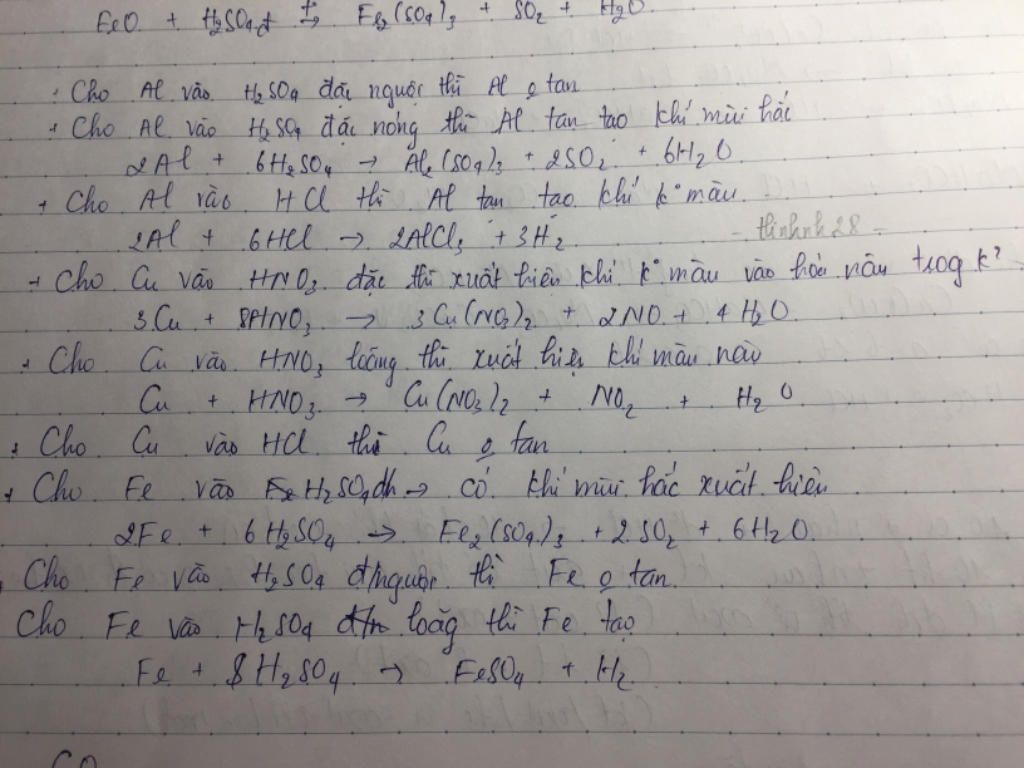 FeO + H₂SO₄đ t° → Fe₂(SO₄)₃ + SO₂ + H₂O.
+ Cho Al vào H₂SO₄ đặc nguội thì Al o tan
+ Cho Al vào H₂SO₄ đặc nóng thì Al tan tạo khí mùi hắc
2Al + 6H₂SO₄ → Al₂(SO₄)₃ + 2SO₂ + 6H₂O
+ Cho Al vào HCl thì Al tan tạo khí k° màu
2Al + 6HCl → 2AlCl₃ + 3H₂
- thinhnh28 -
+ Cho Cu vào HNO₃ đặc thì xuất hiện khí k° màu vào hóa nâu trog k²
3Cu + 8HNO₃ → 3Cu(NO₃)₂ + 2NO + 4H₂O
+ Cho Cu vào HNO₃ loãng thì xuất hiện khí màu nâu
Cu + HNO₃ → Cu(NO₃)₂ + NO₂ + H₂O
+ Cho Cu vào HCl thì Cu o tan
+ Cho Fe vào H₂SO₄đn → có khí mùi hắc xuất hiện
2Fe + 6H₂SO₄ → Fe₂(SO₄)₃ + 2SO₂ + 6H₂O.
Cho Fe vào H₂SO₄ đ/nguội thì Fe o tan.
Cho Fe vào H₂SO₄ loãg thì Fe tạo
Fe + H₂SO₄ → FeSO₄ + H₂
CO